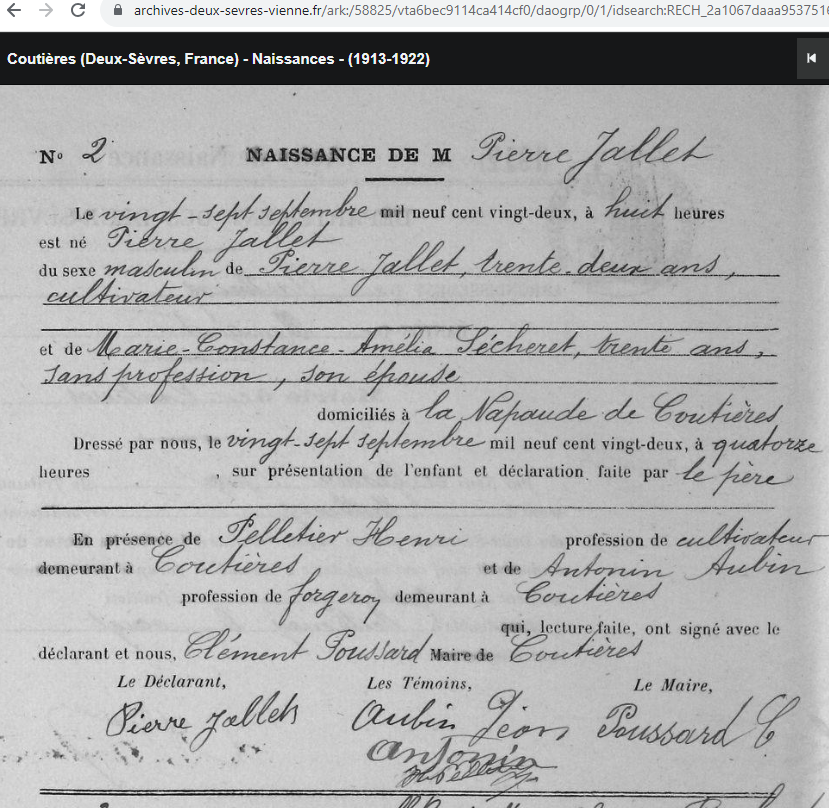 archives-deux-sevres-vienne.fr/ark:/58825/vta6bec9114ca414cf0/daogrp/0/1/idsearch:RECH_2a1067daaa9537516
Coutières (Deux-Sèvres, France) - Naissances - (1913-1922)
N° 2 NAISSANCE DE M Pierre Jallet
Le vingt-sept septembre mil neuf cent vingt-deux, à huit heures
est né Pierre Jallet
du sexe masculin de Pierre Jallet, trente-deux ans,
cultivateur
et de Marie-Constance-Amélia Sécheret, trente ans,
sans profession, son épouse
domiciliés à la Napaude de Coutières
Dressé par nous, le vingt-sept septembre mil neuf cent vingt-deux, à quatorze
heures , sur présentation de l'enfant et déclaration faite par le père
En présence de Pelletier Henri profession de cultivateur
demeurant à Coutières et de Antonin Aubin
profession de forgeron demeurant à Coutières
qui, lecture faite, ont signé avec le
déclarant et nous, Clément Poussard Maire de Coutières
Le Déclarant, Les Témoins, Le Maire,
Pierre Jallet Aubin Jean Poussard C
Antonin